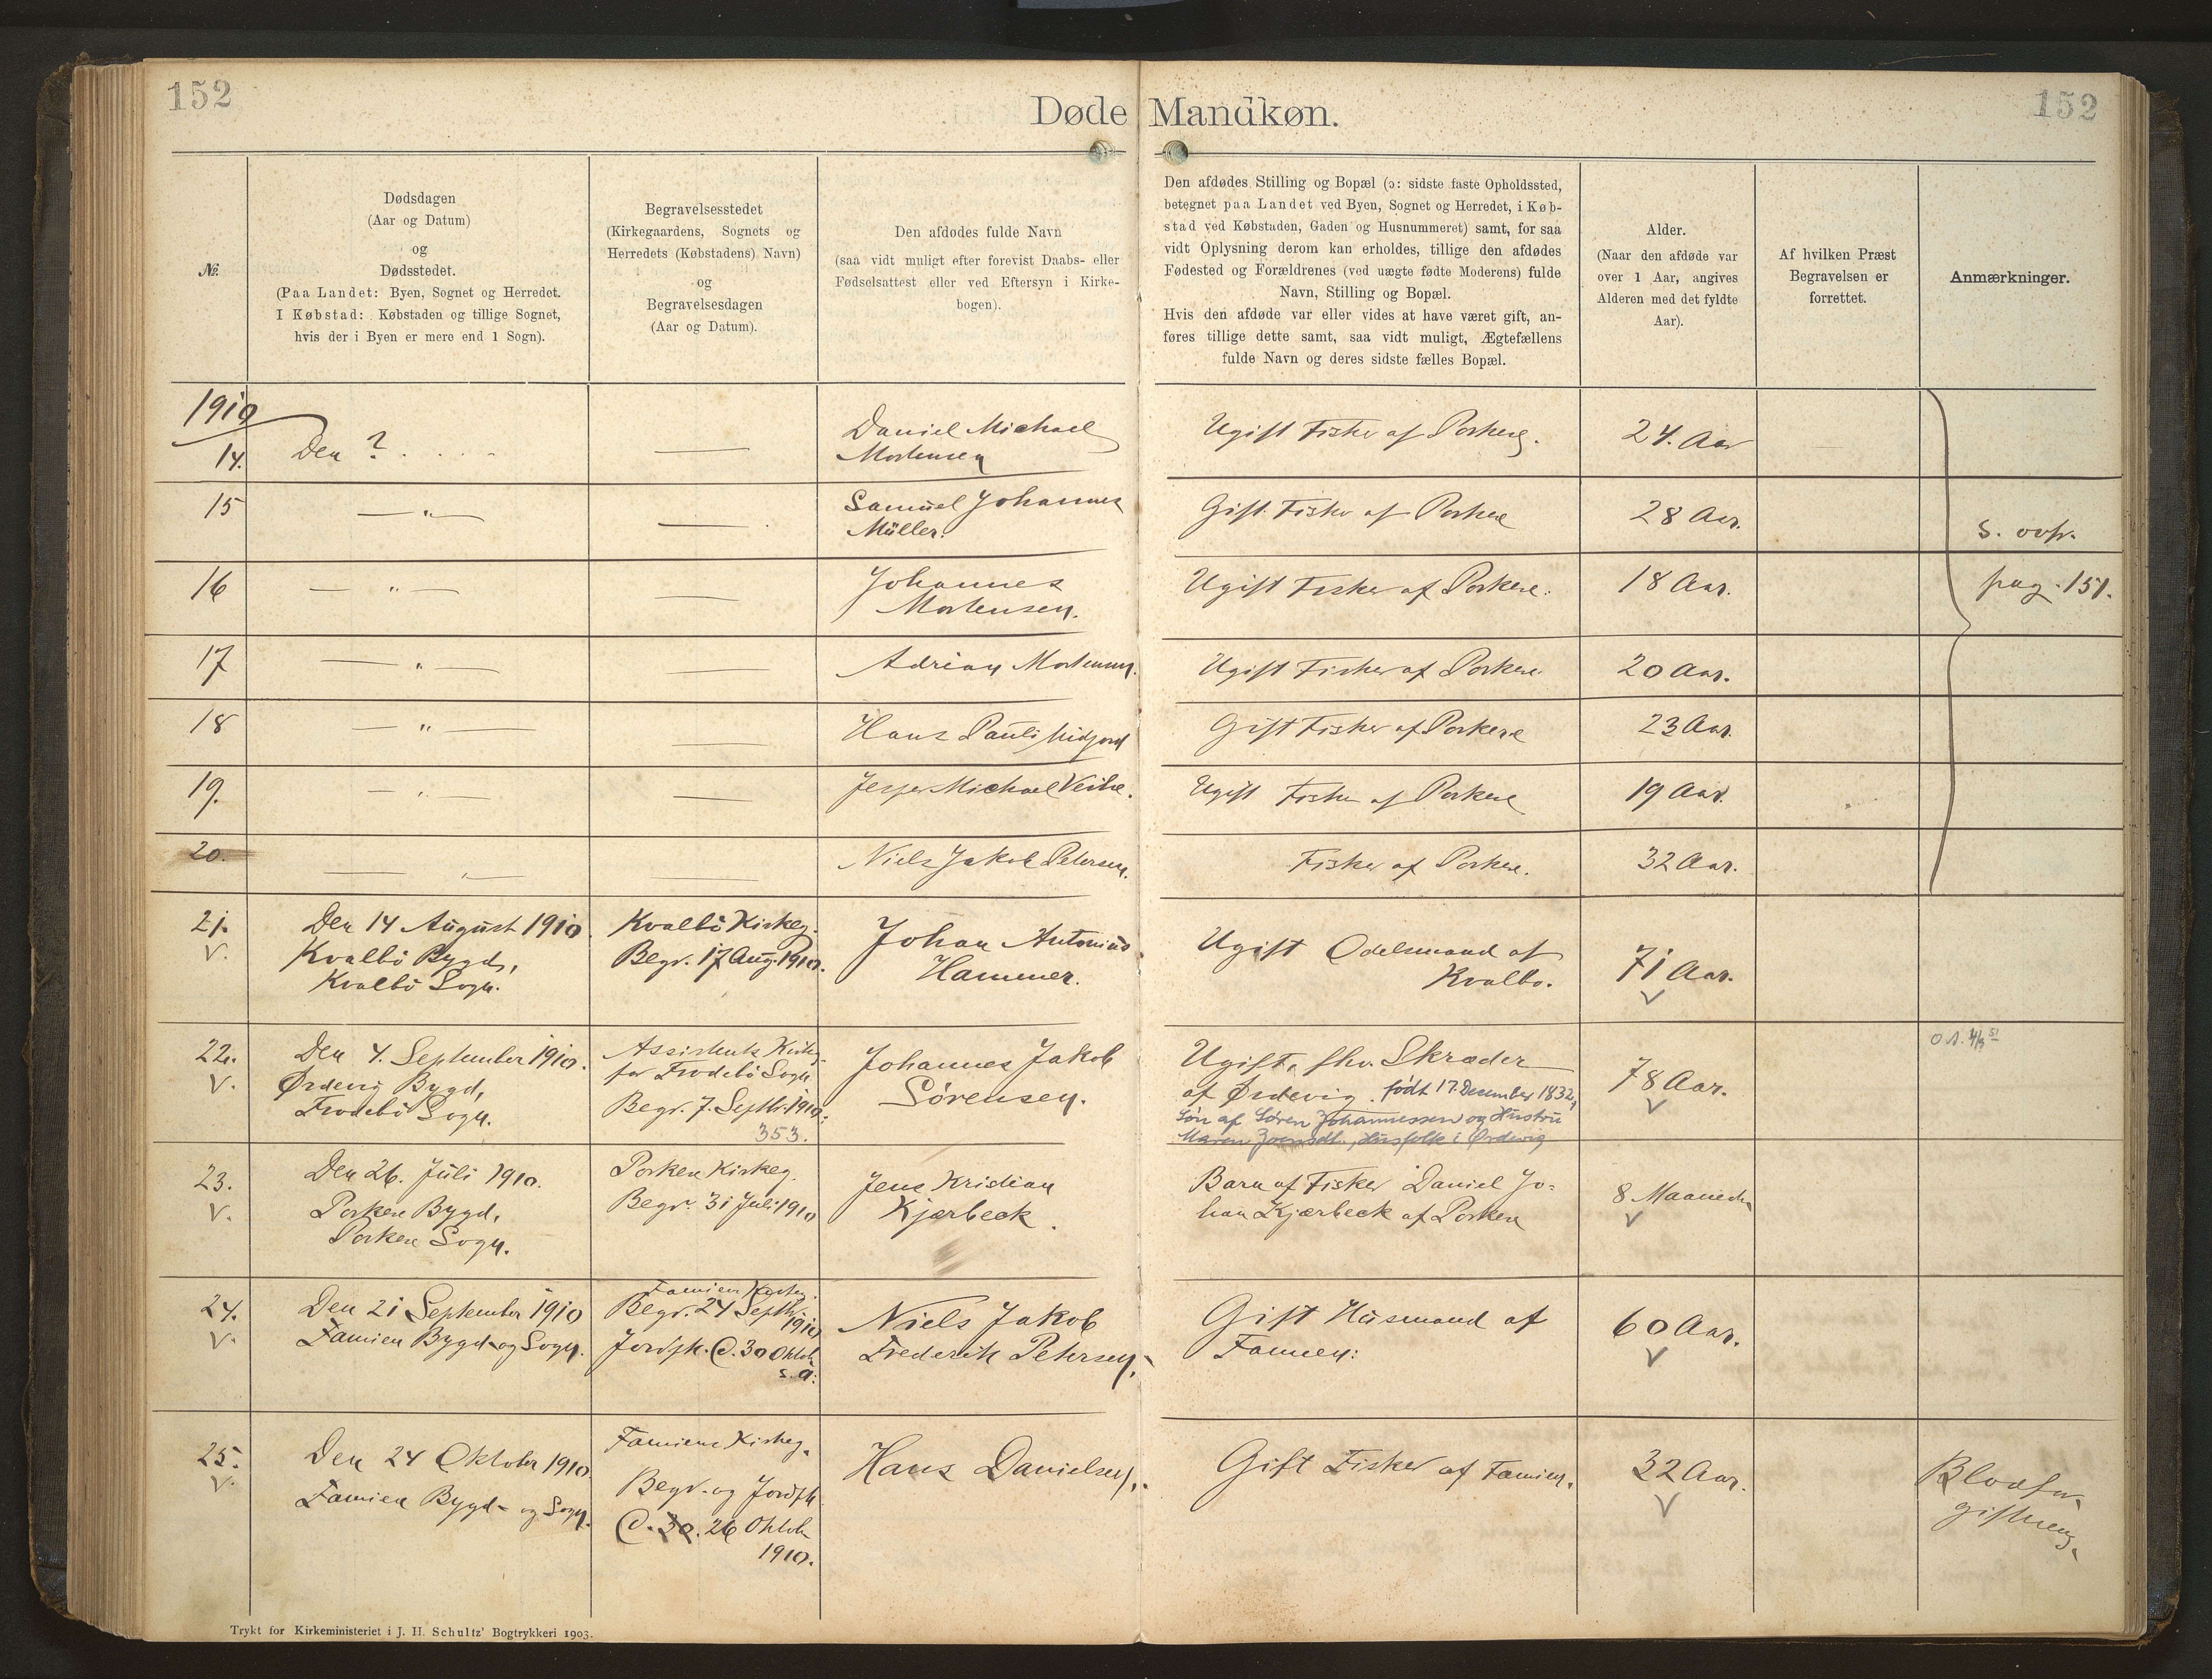 152
152
Døde Mandkøn.
№
Dødsdagen
(Aar og Datum)
og
Dødsstedet.
(Paa Landet: Byen, Sognet og Herredet.
I Købstad: Købstaden og tillige Sognet,
hvis der i Byen er mere end 1 Sogn).
Begravelsesstedet
(Kirkegaardens, Sognets og
Herredets (Købstadens) Navn)
og
Begravelsesdagen
(Aar og Datum).
Den afdødes fulde Navn
(saa vidt muligt efter forevist Daabs- eller
Fødselsattest eller ved Eftersyn i Kirke-
bogen).
Den afdødes Stilling og Bopæl (ɔ: sidste faste Opholdssted,
betegnet paa Landet ved Byen, Sognet og Herredet, i Køb-
stad ved Købstaden, Gaden og Husnummeret) samt, for saa
vidt Oplysning derom kan erholdes, tillige den afdødes
Fødested og Forældrenes (ved uægte fødte Moderens) fulde
Navn, Stilling og Bopæl.
Hvis den afdøde var eller vides at have været gift, an-
føres tillige dette samt, saa vidt muligt, Ægtefællens
fulde Navn og deres sidste fælles Bopæl.
Alder.
(Naar den afdøde var
over 1 Aar, angives
Alderen med det fyldte
Aar).
Af hvilken Præst
Begravelsen er
forrettet.
Anmærkninger.
1910
14. Den ? . . . — Daniel Michael
Mortensen
Ugift Fisker af Porkere. 24. Aar
15 — " — — Samuel Johannes
Müller.
Gift Fisker af Porkere 28 Aar.
s. ovf.
16 — " — — Johannes
Mortensen.
Ugift Fisker af Porkere. 18 Aar.
pag. 151.
17 — " — — Adrian Mortensen.
Ugift Fisker af Porkere. 20 Aar.
18 — " — — Hans Pauli Midjord
Gift Fisker af Porkere 23 Aar.
19. — " — — Jesper Michael Veihe.
Ugift Fisker af Porkere 19 Aar.
20. — " — — Niels Jakob Petersen.
Fisker af Porkere. 32 Aar.
21. V.
Den 14 August 1910.
Kvalbö Bygd,
Kvalbö Sogn.
Kvalbö Kirkeg.
Begr. 17 Aug. 1910.
Johan Antonius
Hammer.
Ugift Odelsmand af
Kvalbö.
71 Aar.
22. V.
Den 4. September 1910.
Ørdevig Bygd,
Frodebö Sogn.
Assistents Kirkeg.
for Frodebö Sogn
Begr. 7. Septb. 1910.
353.
Johannes Jakob
Sörensen.
Ugift, fhv. Skræder
af Ørdevig. født 17. Desember 1832,
Sön af Sören Johannessen og Hustru
Maren Joensdt., Husfolk i Ørdevig
78 Aar.
23. V.
Den 26. Juli 1910.
Porkere Bygd,
Porkere Sogn.
Porkere Kirkeg.
Begr. 31 Juli 1910
Jens Kristian
Kjærbeck.
Barn af Fisker Daniel Jo=
han Kjærbeck af Porkere
8 Maaneder
24. V.
Den 21 September 1910
Famien Bygd- og Sogn.
Famien Kirkeg.
Begr. 24 Septb.
1910
Jordfk. @. 30 Oktob.
s. a.
Niels Jakob
Frederik Petersen.
Gift Husmand af
Famien.
60 Aar.
25. V.
Den 24 Oktober 1910.
Famien Bygd- og Sogn.
Famiens Kirkeg.
Begr. og Jordfk
@. 30. 26 Oktob.
1910.
Hans Danielsen.
Gift Fisker af Famien.
32 Aar.
Blodfor-
giftning.
Trykt for Kirkeministeriet i J. H. Schultz' Bogtrykkeri 1903.